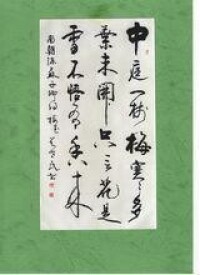 中庭一樹梅寒多
葉未開只言花是
雪不悟有香来
南朝陈蘇子卿詩梅花